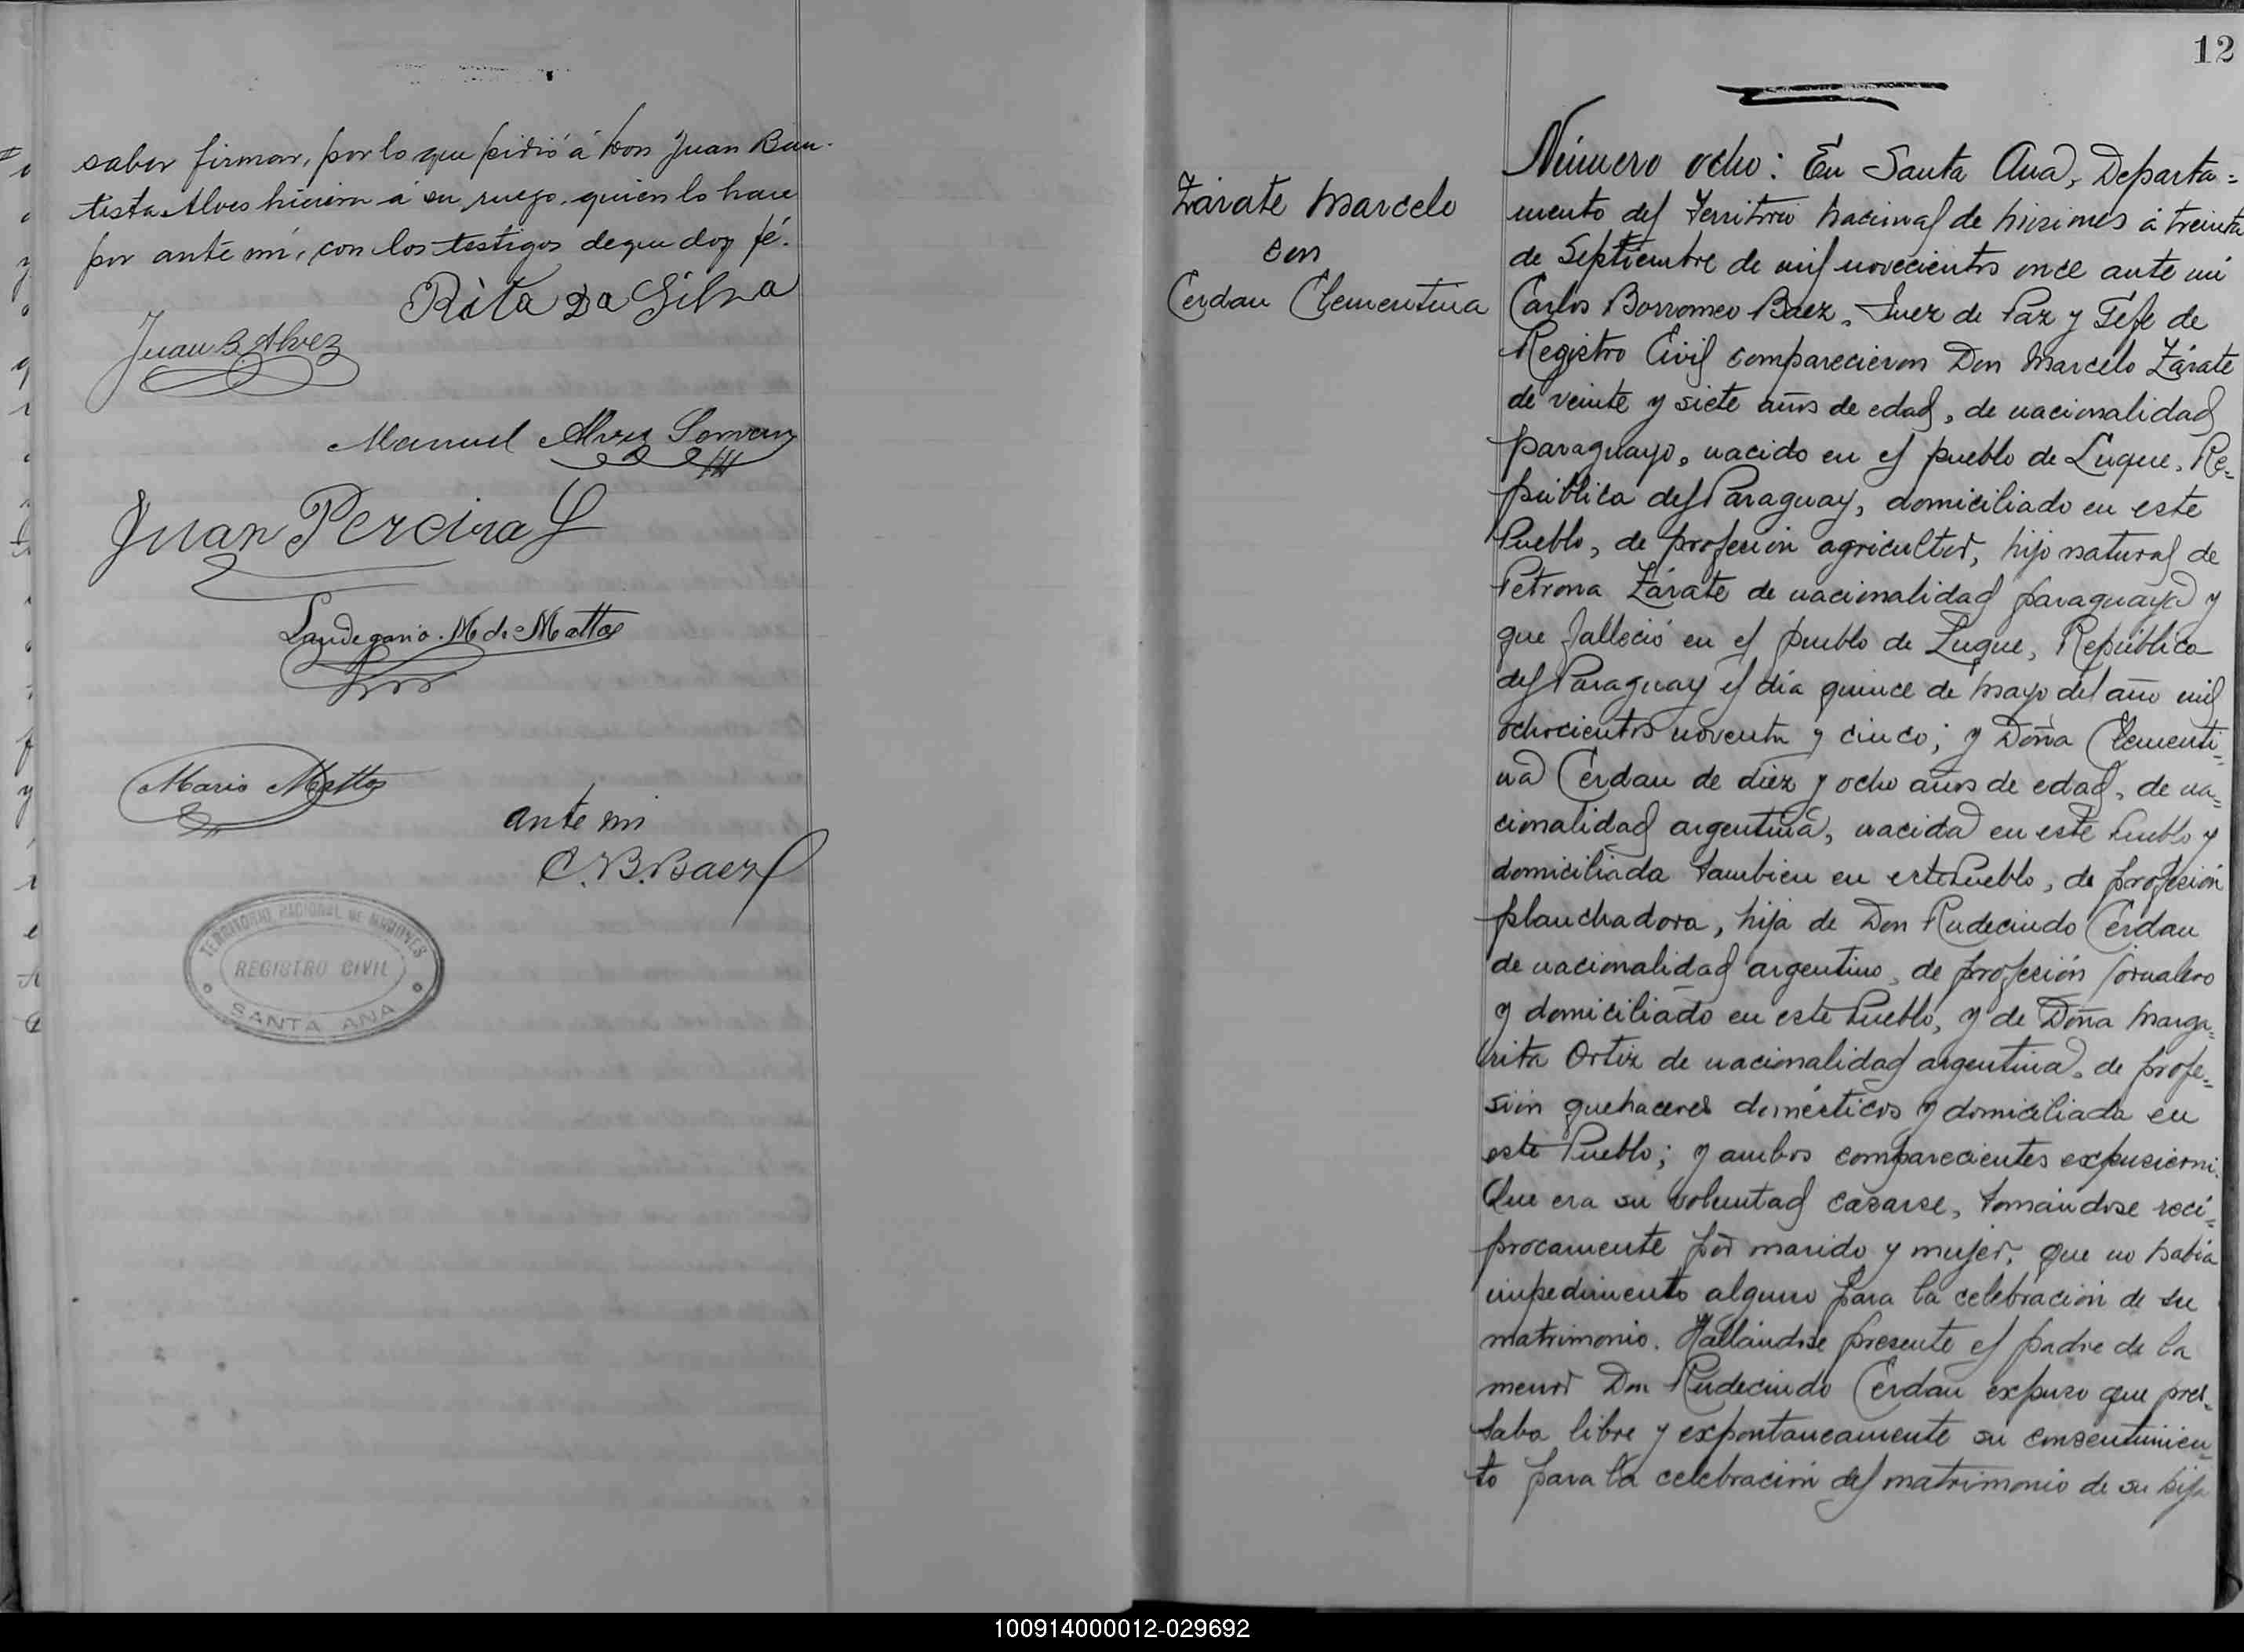 saber firmar, por lo que pidió á Don Juan Bau-
tista Alves hiciera á su ruego, quien lo hace
por ante mí, con los testigos de que doy fé.
Rita Da Silva
Juan B. Alvez
Manuel Alves
Juan Pereira
M. de Mattos
Mario Mattos
ante mi
C. B. Baez
TERRITORIO NACIONAL DE MISIONES
REGISTRO CIVIL
SANTA ANA
12
Zárate Marcelo
con
Cerdan Clementina
Número ocho: En Santa Ana, Departa=
mento del Territorio Nacional de Misiones á treinta
de Septiembre de mil novecientos once ante mi
Carlos Borromeo Baez, Juez de Paz y Jefe de
Registro Civil comparecieron Don Marcelo Zárate
de veinte y siete años de edad, de nacionalidad
paraguayo, nacido en el pueblo de Luque, Re=
pública del Paraguay, domiciliado en este
Pueblo, de profesión agricultor, hijo natural de
Petrona Zárate de nacionalidad paraguaya y
que falleció en el pueblo de Luque, República
del Paraguay el día quince de Mayo del año mil
ochocientos noventa y cinco; y Doña Clementi=
na Cerdan de diez y ocho años de edad, de na=
cionalidad argentina, nacida en este Pueblo y
domiciliada tambien en este Pueblo, de profesión
planchadora, hija de Don Rudecindo Cerdan
de nacionalidad argentino, de profesión jornalero
y domiciliado en este Pueblo, y de Doña Marga=
rita Ortiz de nacionalidad argentina, de profe=
sión quehaceres domésticos y domiciliada en
este Pueblo; y ambos comparecientes expusieron:
Que era su voluntad casarse, tomándose recí=
procamente por marido y mujer, que no había
impedimento alguno para la celebración de su
matrimonio. Hallándose presente el padre de la
menor Don Rudecindo Cerdan expuso que pres=
taba libre y expontaneamente su consentimien=
to para la celebración del matrimonio de su hija
100914000012-029692